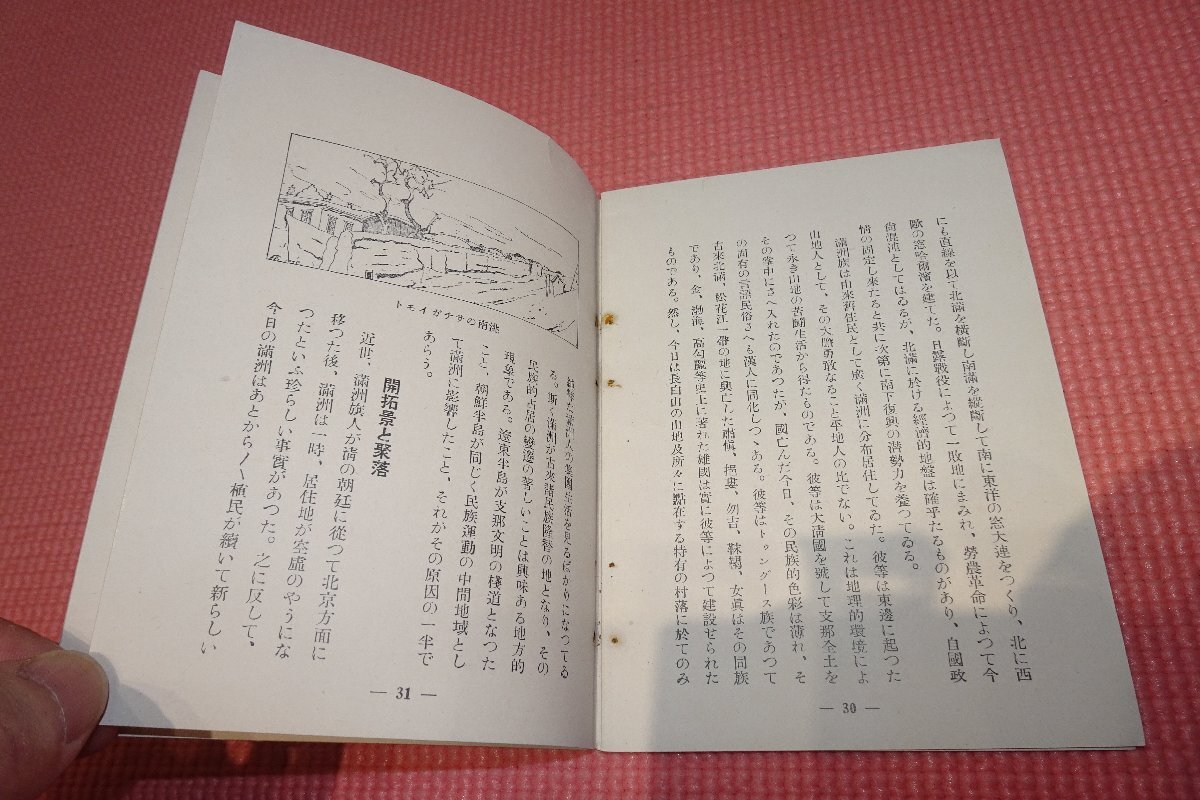 にも直線を以て北滿を横斷し南滿を縱斷して南に東洋の窓大連をつくり、北に西
歐の窓哈爾濱を建てた。日露戰役によつて一敗地にまみれ、勞農革命によつて今
尚混沌としてはゐるが、北滿に於ける經濟的地盤は確乎たるものがあり、自國政
情の固定し來たると共に次第に南下復興の潜勢力を養つてゐる。
滿洲族は由來舊住民として廣く滿洲に分布居住してゐた。彼等は東邊に起つた
山地人として、その大膽勇敢なること平地人の比でない。これは地理的環境によ
つて永き山地の苦鬪生活から得たものである。彼等は大淸國を號して支那全土を
その掌中にさへ入れたのであつたが、國亡んだ今日、その民族的色彩は薄れ、そ
の固有の言語民俗さへも漢人に同化しつゝある。彼等はトゥングース族であつて
古來北滿、松花江一帶の地に興亡した肅愼、挹婁、勿吉、靺鞨、女眞はその同族
であり、金、渤海、高勾麗等史上に著れた雄國は實に彼等によつて建設せられた
ものである。然し、今日は長白山の山地及所々に點在する特有の村落に於てのみ
— 30 —
洮南のサナガイモト
純粹な滿洲人の集團生活を見るばかりになつてゐ
る。斯く滿洲が古來諸民族隆替の地となり、その
民族的占居の變遷の著しいことは興味ある地方的
現象である。遼東半島が支那文明の棧道となつた
こと、朝鮮半島が同じく民族運動の中間地域とし
て滿洲に影響したこと、それがその原因の一半で
あらう。
開拓景と聚落
近世、滿洲旗人が淸の朝廷に從つて北京方面に
移つた後、滿洲は一時、居住地が空虛のやうにな
つたといふ珍らしい事實があつた。之に反して、
今日の滿洲はあとから〱植民が續いて新らしい
— 31 —